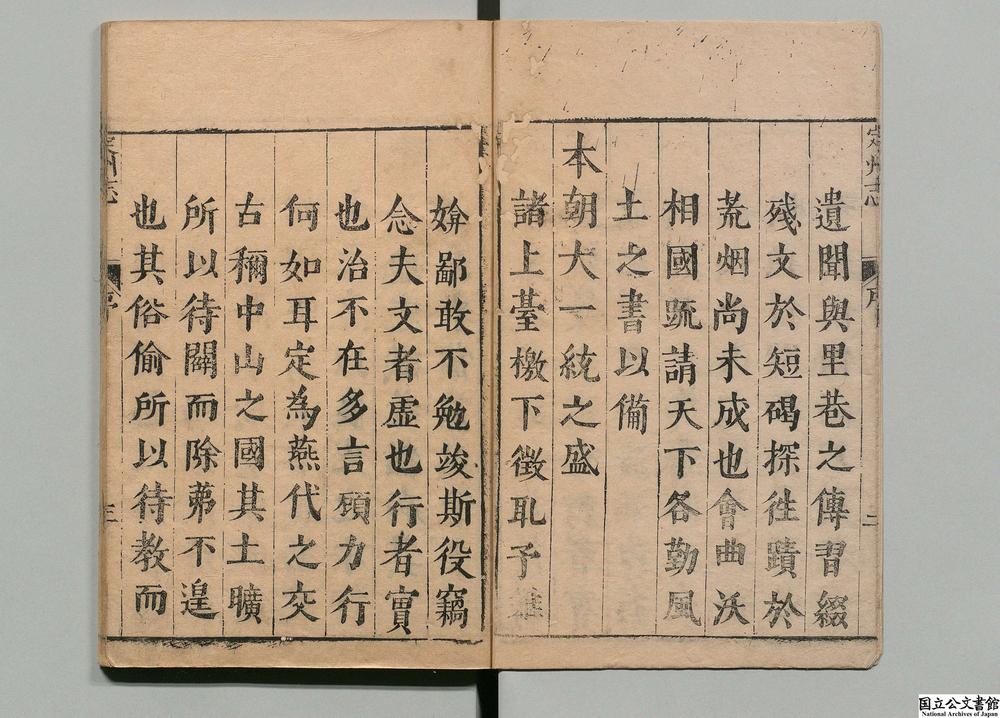 遺聞與里巷之傳習綴
殘文於短碣探往蹟於
荒烟尚未成也會曲沃
相國疏請天下各勤風
土之書以備
本朝大一統之盛
諸上臺檄下徵耴予雖
媕鄙敢不勉竣斯役竊
念夫文者虚也行者實
也治不在多言顧力行
何如耳定為燕代之交
古稱中山之國其土曠
所以待闢而除茀不遑
也其俗偷所以待教而
定州志
序
二
定州志
序
三
国立公文書館
National Archives of Japan